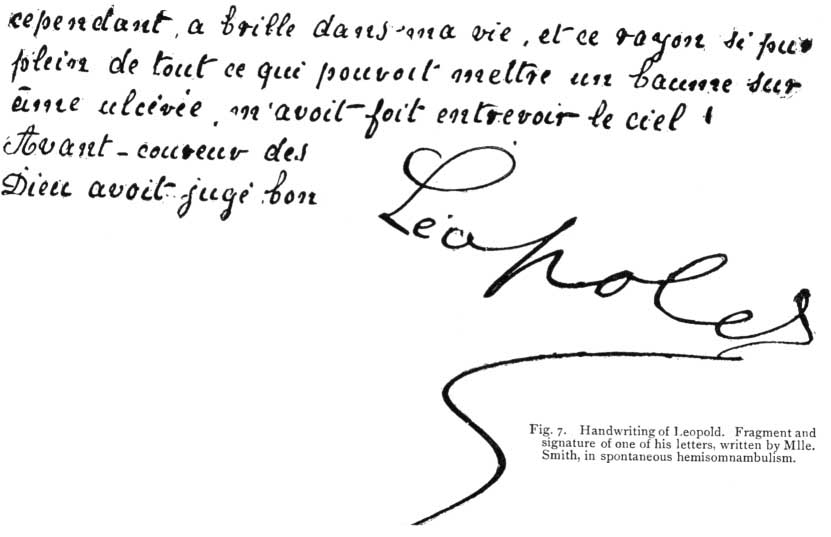 cependant, a brillé dans ma vie, et ce rayon si pur
plein de tout ce qui pouvoit mettre un baume sur
âme ulcérée, m'avoit-foit entrevoir le ciel !
Avant-coureur des
Dieu avoit jugé bon
Léopold
Fig. 7. Handwriting of Leopold. Fragment and
signature of one of his letters, written by Mlle.
Smith, in spontaneous hemisomnambulism.